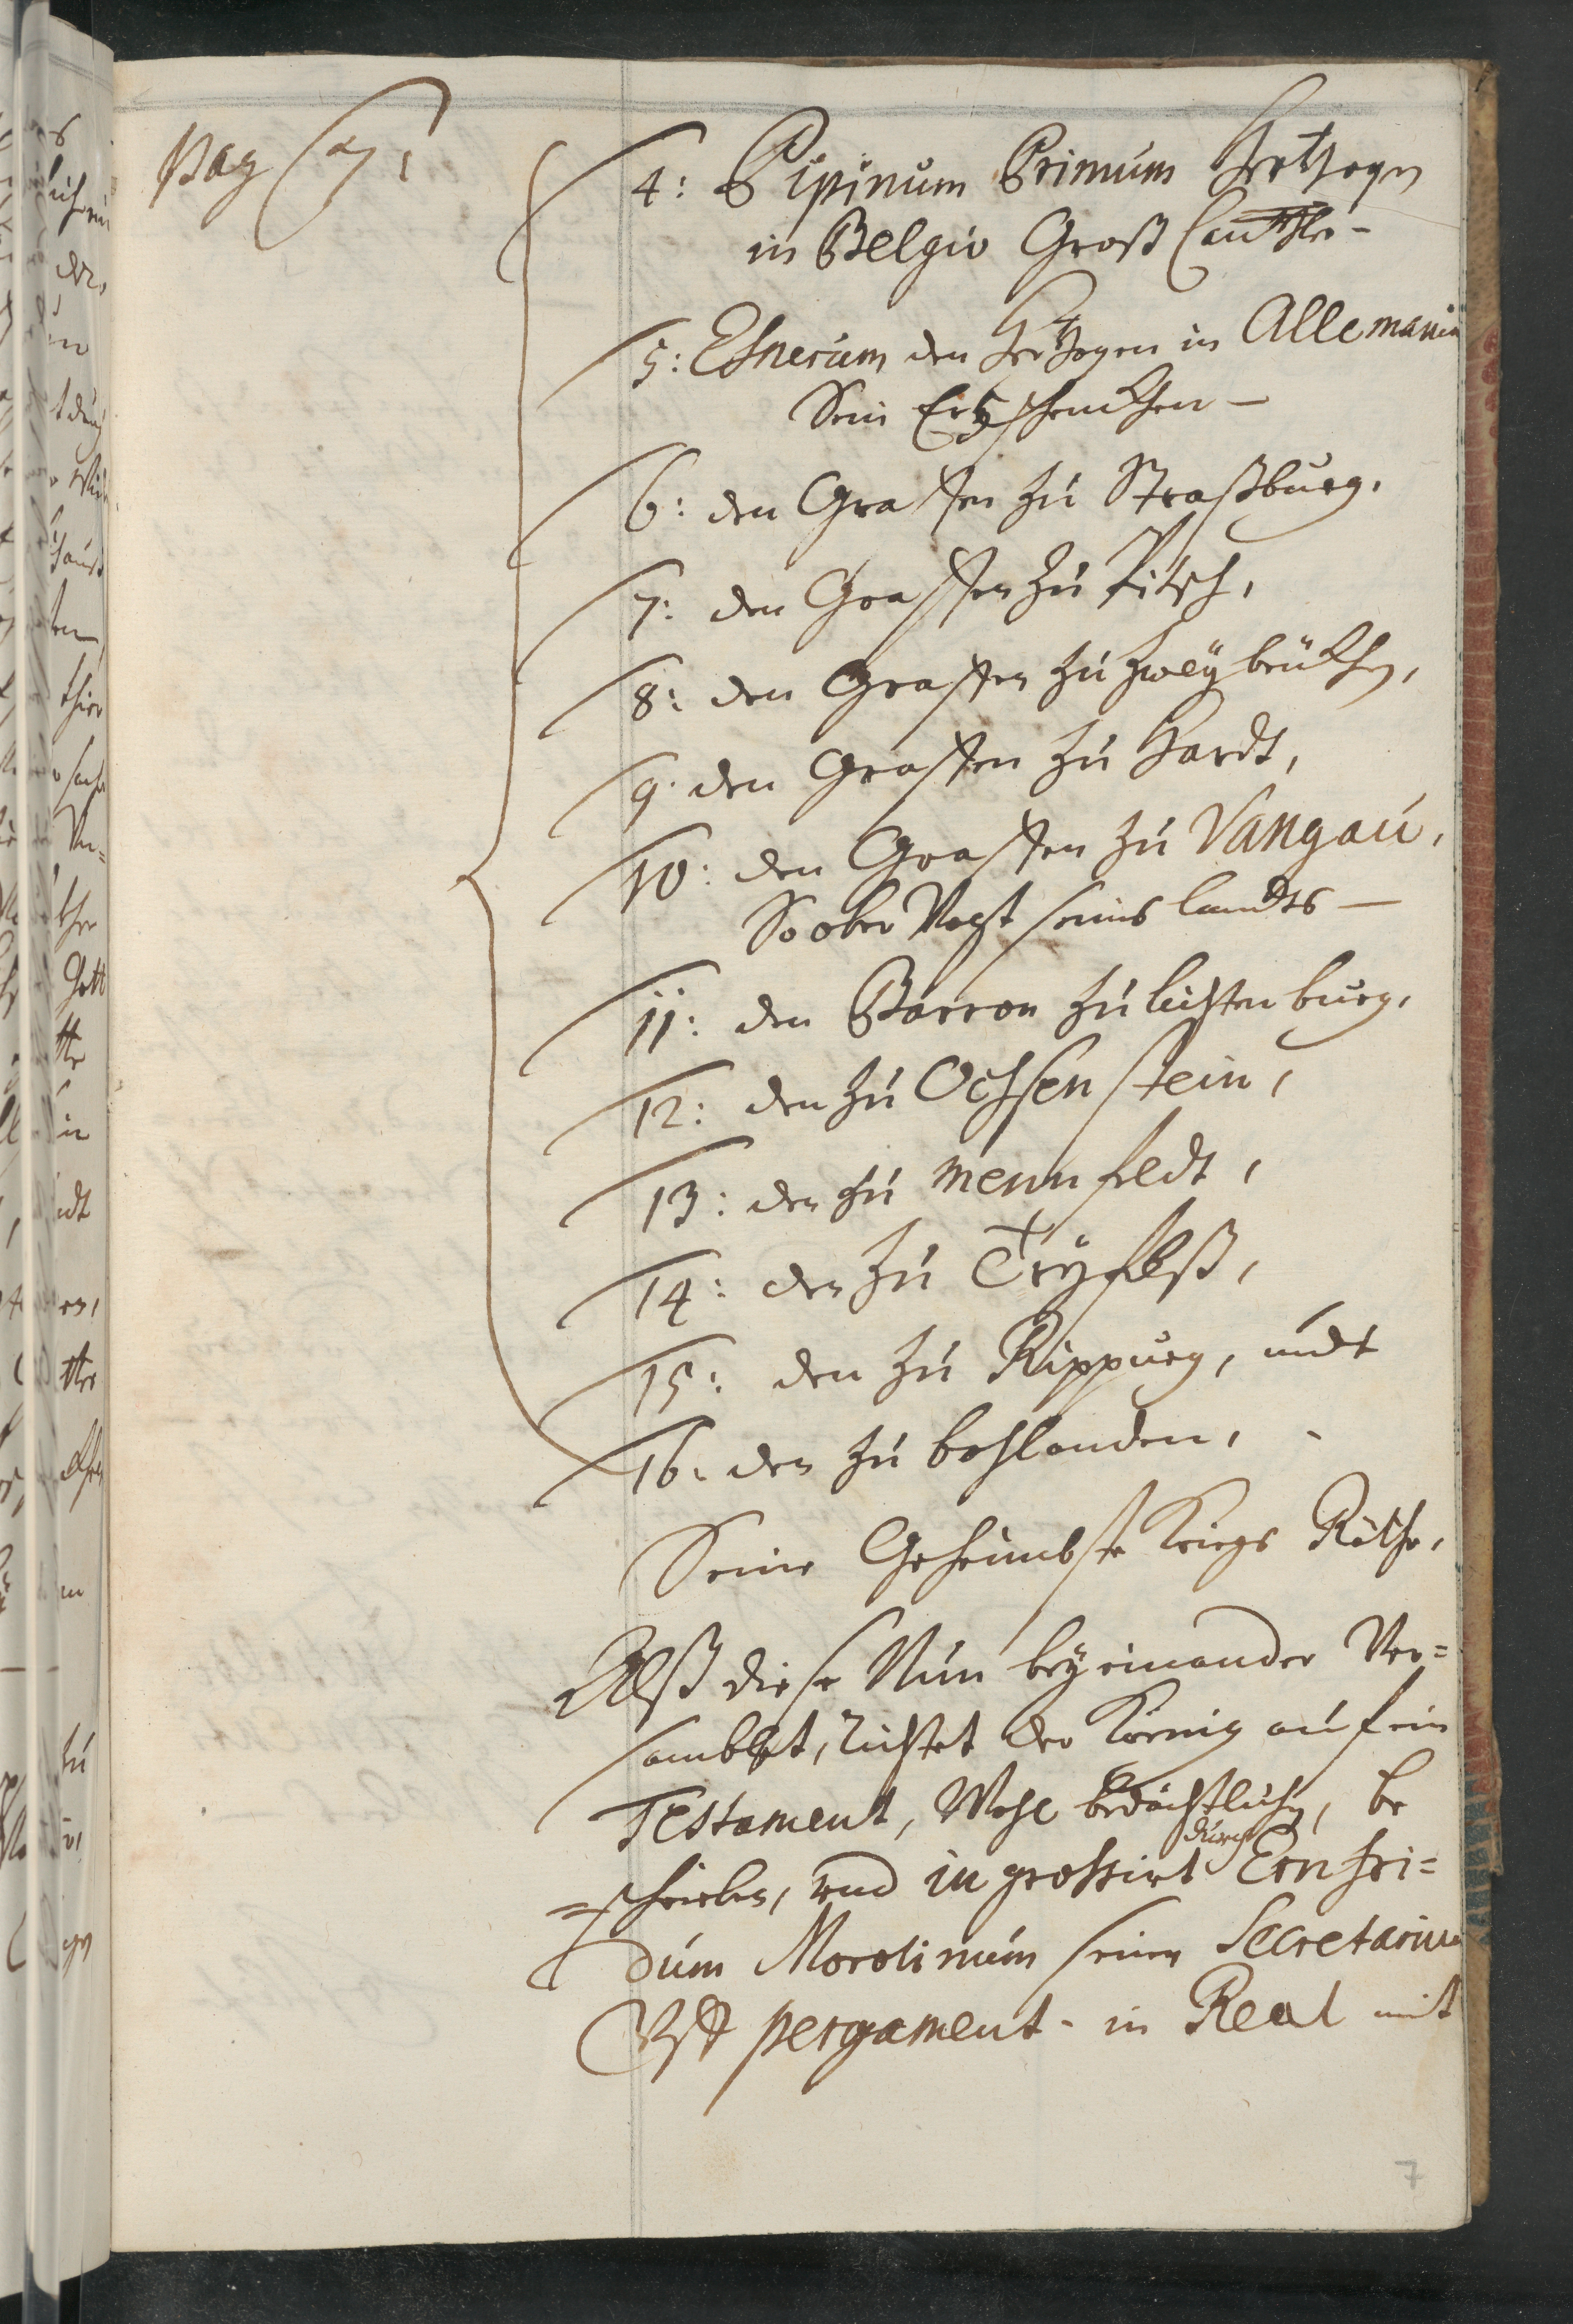 Pag 7:
4: Pipinum Primum Hertzogen
in Belgio Groß Cantzler -
5: Etnerum den Hertzogen in Allemania
Sein Ertzschenckhen -
6: den Graffen zu Straßburg,
7: den Graffen zu Pitsch,
8: den Graffen zu Zweybrükhen,
9: den Graffen zu Hardt,
10: den Graffen zu Vangau,
So ober Vogt seines landts -
11: den Barron zu lichtenburg,
12: den zu Ochsenstein,
13: den zu Mennfeldt,
14: den zu Tryfelß,
15: den zu Rippurg, undt
16: den zu bohlanden,
Seine Geheimbste Kriegs Räthe,
Alß diese Nun beyeinander Ver=
samblet, Richtet der König auf ein
Testament, Wohl bedächtlichen, be
=schrieben, und in grossirt durch Ernfri=
dum Morolinum seinen Secretarium
Uff pergament - in Real mit
7